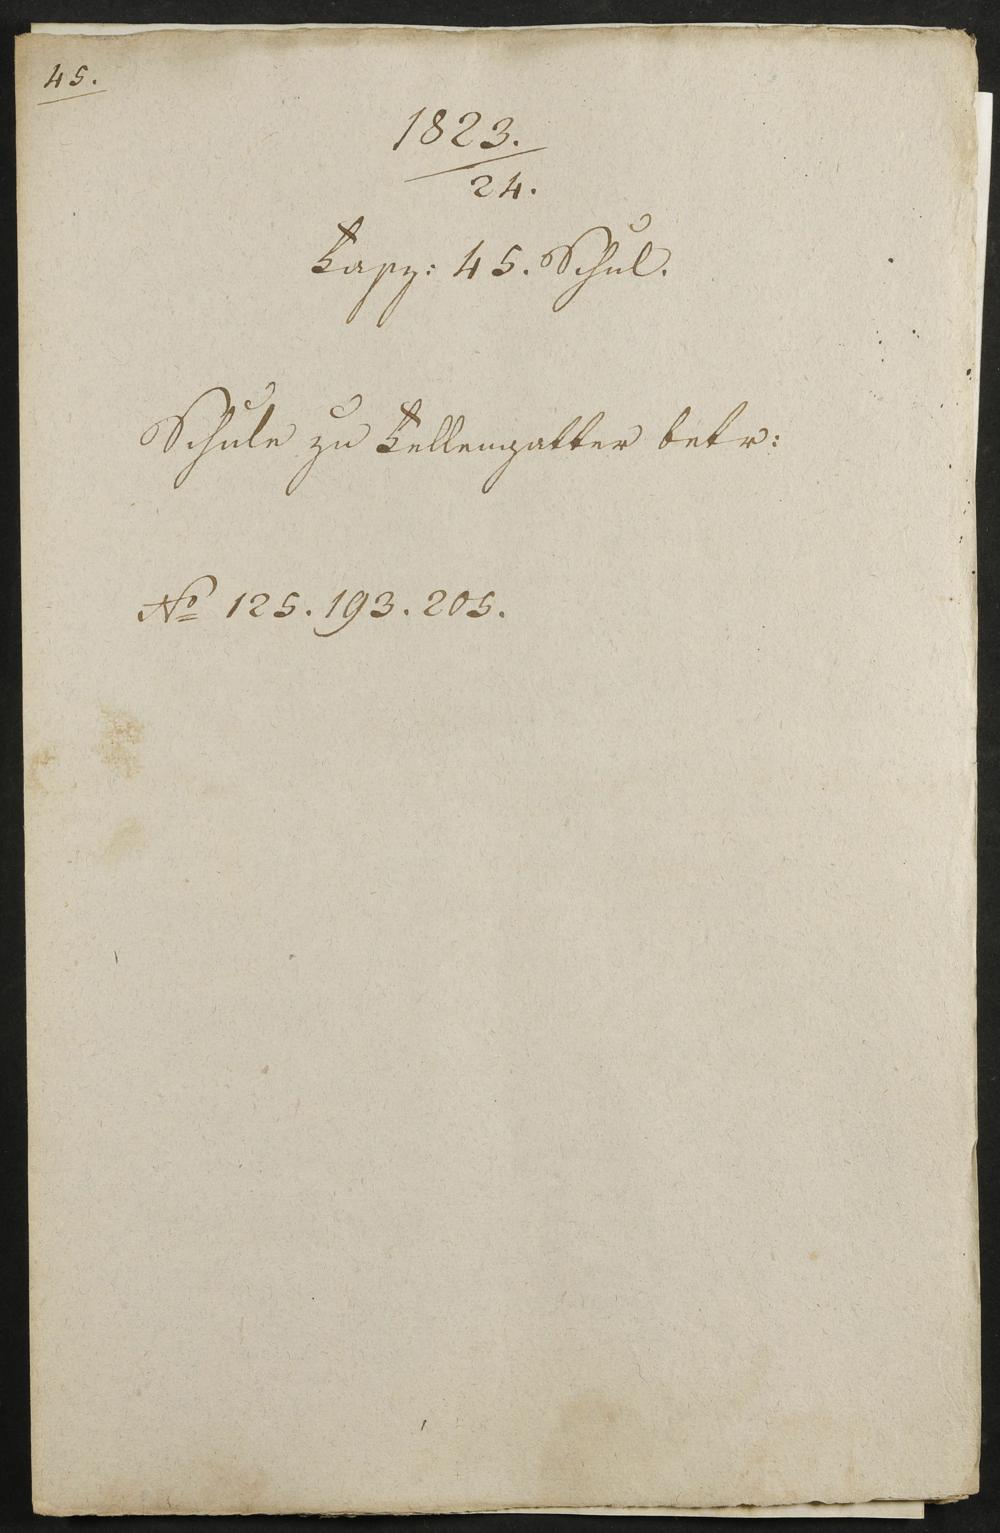 45.
1823.
24.
Kasz: 45. Schul.
Schule zu Kellengatter betr:
No 125. 193. 205.